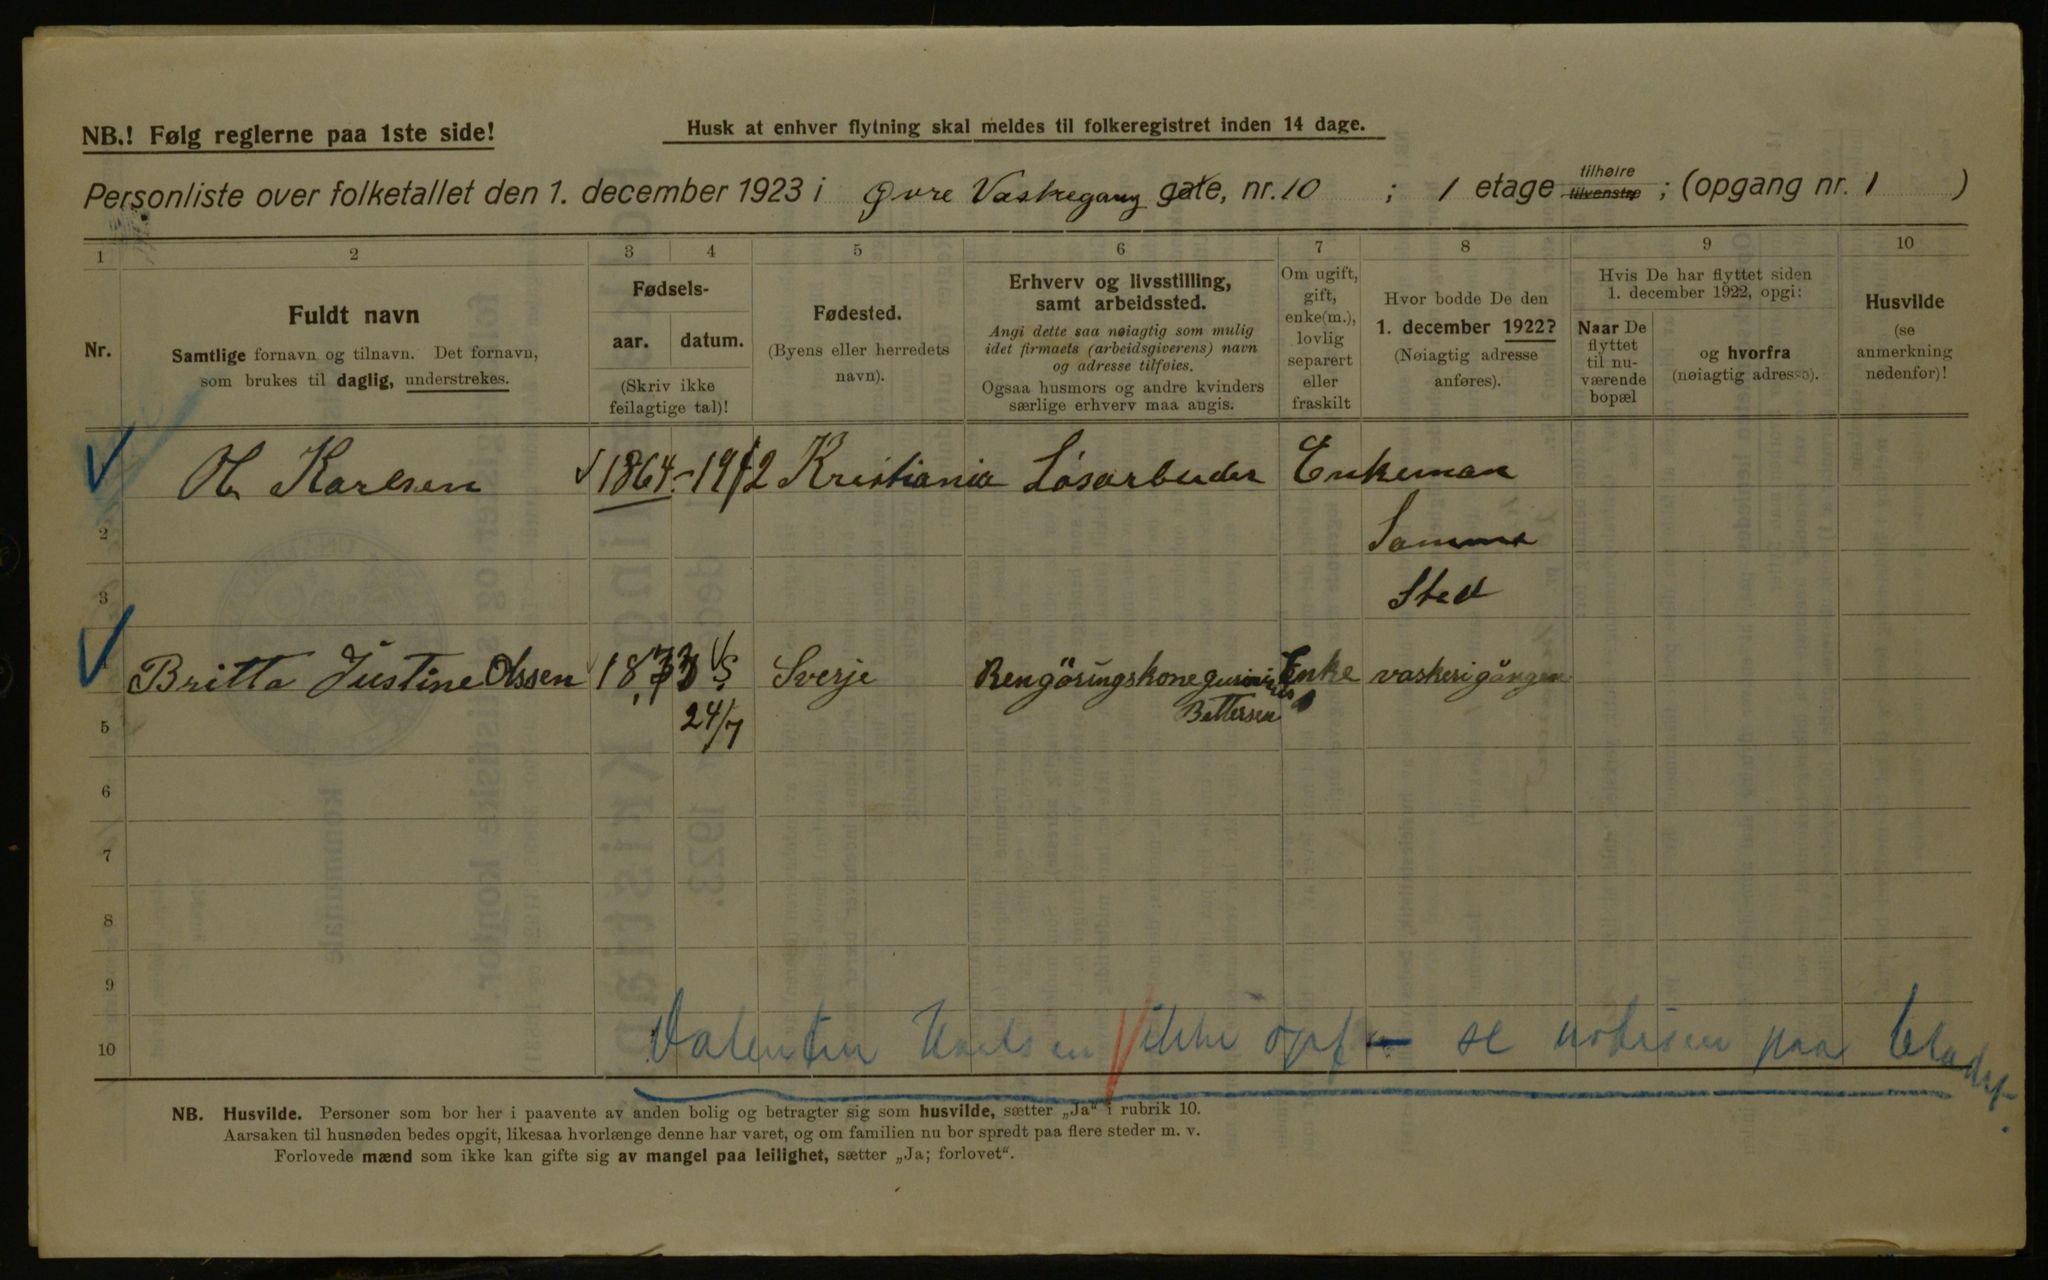 NB.! Følg reglerne paa 1ste side!
Husk at enhver flytning skal meldes til folkeregistret inden 14 dage.
Personliste over folketallet den 1. december 1923 i Øvre Vaskegang gate, nr. 10 ; 1 etage tilhøire tilvenstre ; (opgang nr. 1 )
1 2 3 4 5 6 7 8 9 10
Nr.
Fuldt navn
Samtlige fornavn og tilnavn. Det fornavn,
som brukes til daglig, understrekes.
Fødsels-
aar. datum.
(Skriv ikke
feilagtige tal)!
Fødested.
(Byens eller herredets
navn).
Erhverv og livsstilling,
samt arbeidssted.
Angi dette saa nøiagtig som mulig
idet firmaets (arbeidsgiverens) navn
og adresse tilføies.
Ogsaa husmors og andre kvinders
særlige erhverv maa angis.
Om ugift,
gift,
enke(m.),
lovlig
separert
eller
fraskilt
Hvor bodde De den
1. december 1922?
(Nøiagtig adresse
anføres).
Hvis De har flyttet siden
1. december 1922, opgi:
Naar De
flyttet
til nu-
værende
bopæl
og hvorfra
(nøiagtig adresse).
Husvilde
(se
anmerkning
nedenfor)!
Karlsen 1864 Kristiania Løsarbeider Enkeman
2 Samme
3 Sted
Britta Justine Olssen Sverje Rengöringskone Enke vaskerigången
5 24/7 Bettersen
6
7
8
9
10 Valentin ikke opf - se notisen paa
NB. Husvilde. Personer som bor her i paavente av anden bolig og betragter sig som husvilde, sætter „Ja“ i rubrik 10.
Aarsaken til husnøden bedes opgit, likesaa hvorlænge denne har varet, og om familien nu bor spredt paa flere steder m. v.
Forlovede mænd som ikke kan gifte sig av mangel paa leilighet, sætter „Ja; forlovet“.